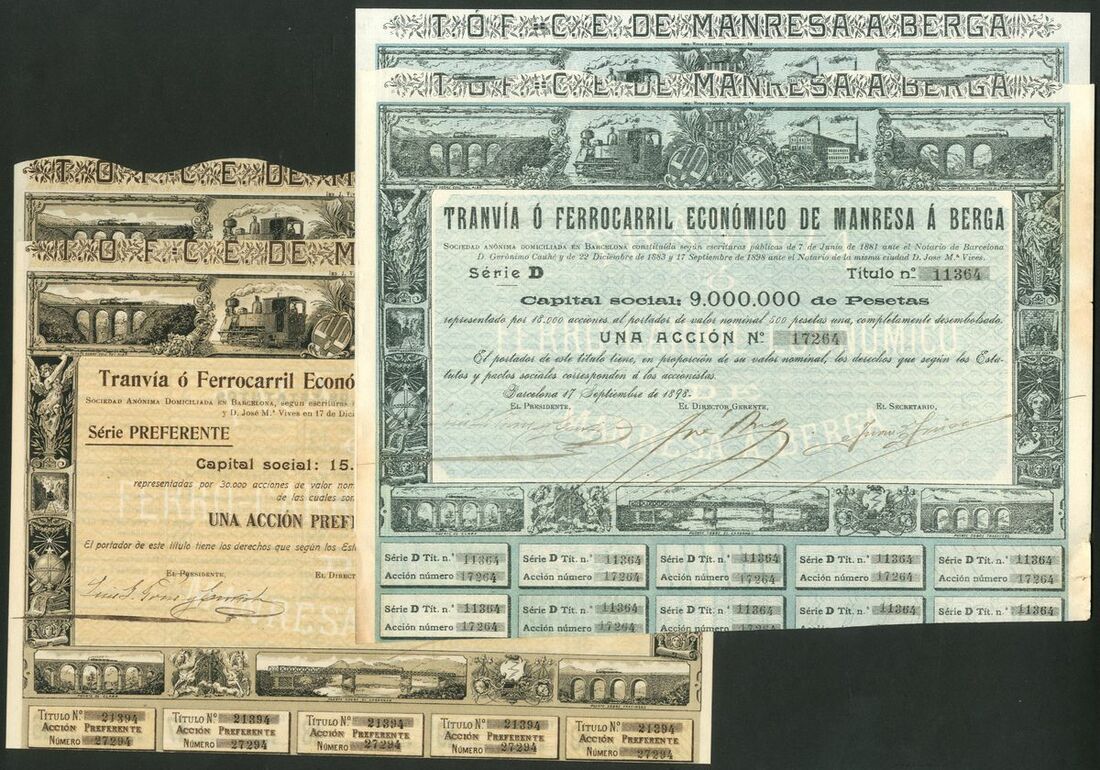 T Ó F=C=E. DE MANRESA A BERGA
T Ó F=C=E. DE MANRESA A BERGA
TRANVÍA Ó FERROCARRIL ECONÓMICO DE MANRESA Á BERGA
SOCIEDAD ANÓNIMA DOMICILIADA EN BARCELONA constituída según escrituras públicas de 7 de Junio de 1881 ante el Notario de Barcelona
D. Gerónimo Cauhé y de 22 Diciembre de 1883 y 17 Septiembre de 1898 ante el Notario de la misma ciudad D. José Mª Vives.
Série D Título nº 11364
Capital social: 9.000.000 de Pesetas
representado por 18.000 acciones al portador de valor nominal 500 pesetas una, completamente desembolsado.
UNA ACCIÓN Nº 17264
El portador de este título tiene, en proporción de su valor nominal, los derechos que según los Esta-
tutos y pactos sociales corresponden á los accionistas.
Barcelona 17 Septiembre de 1898.
EL PRESIDENTE, EL DIRECTOR GERENTE, EL SECRETARIO,
FERROCARRIL ECONÓMICO
MANRESA Á BERGA
Série D Tít. n.º 11364 Série D Tít. n.º 11364 Série D Tít. n.º 11364 Série D Tít. n.º 11364 Série D Tít. n.º 11364
Acción número 17264 Acción número 17264 Acción número 17264 Acción número 17264 Acción número 17264
Série D Tít. n.º 11364 Série D Tít. n.º 11364 Série D Tít. n.º 11364 Série D Tít. n.º 11364 Série D Tít. n.º 11364
Acción número 17264 Acción número 17264 Acción número
T Ó F=C=E. DE
T Ó F=C=E. DE M
Tranvía ó Ferrocarril Econó
SOCIEDAD ANÓNIMA DOMICILIADA EN BARCELONA, según escrituras
y D. José M.ª Vives en 17 de Dici
Série PREFERENTE
Capital social: 15.
representadas por 30.000 acciones de valor nom
de las cuales son
UNA ACCIÓN PREF
El portador de este título tiene los derechos que según los Est
EL PRESIDENTE, EL DIRECT
TÍTULO Nº 21394 TÍTULO Nº 21394 TÍTULO Nº 21394 TÍTULO Nº 21394 TÍTULO Nº 21394
ACCIÓN PREFERENTE ACCIÓN PREFERENTE ACCIÓN PREFERENTE ACCIÓN PREFERENTE ACCIÓN PREFERENTE
NÚMERO 27294 NÚMERO 27294 NÚMERO 27294 NÚMERO 27294 NÚMERO 27294